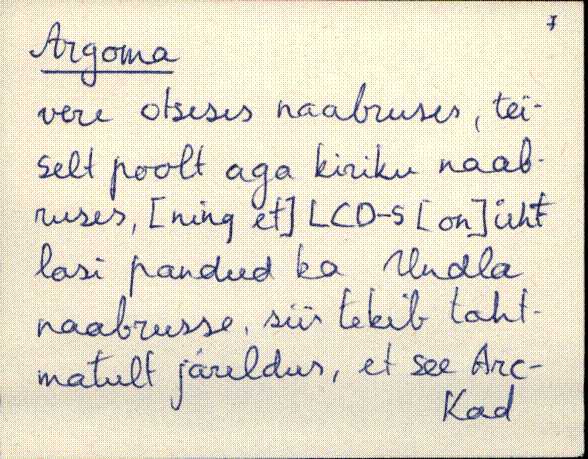 7
Argoma
vere otseses naabruses, tei-
selt poolt aga kiriku naab-
ruses, [ning et] LCD-s [on] üht
lasi pandud ka Undla
naabrusse, siis tekib taht-
matult järeldus, et see Arc-
Kad